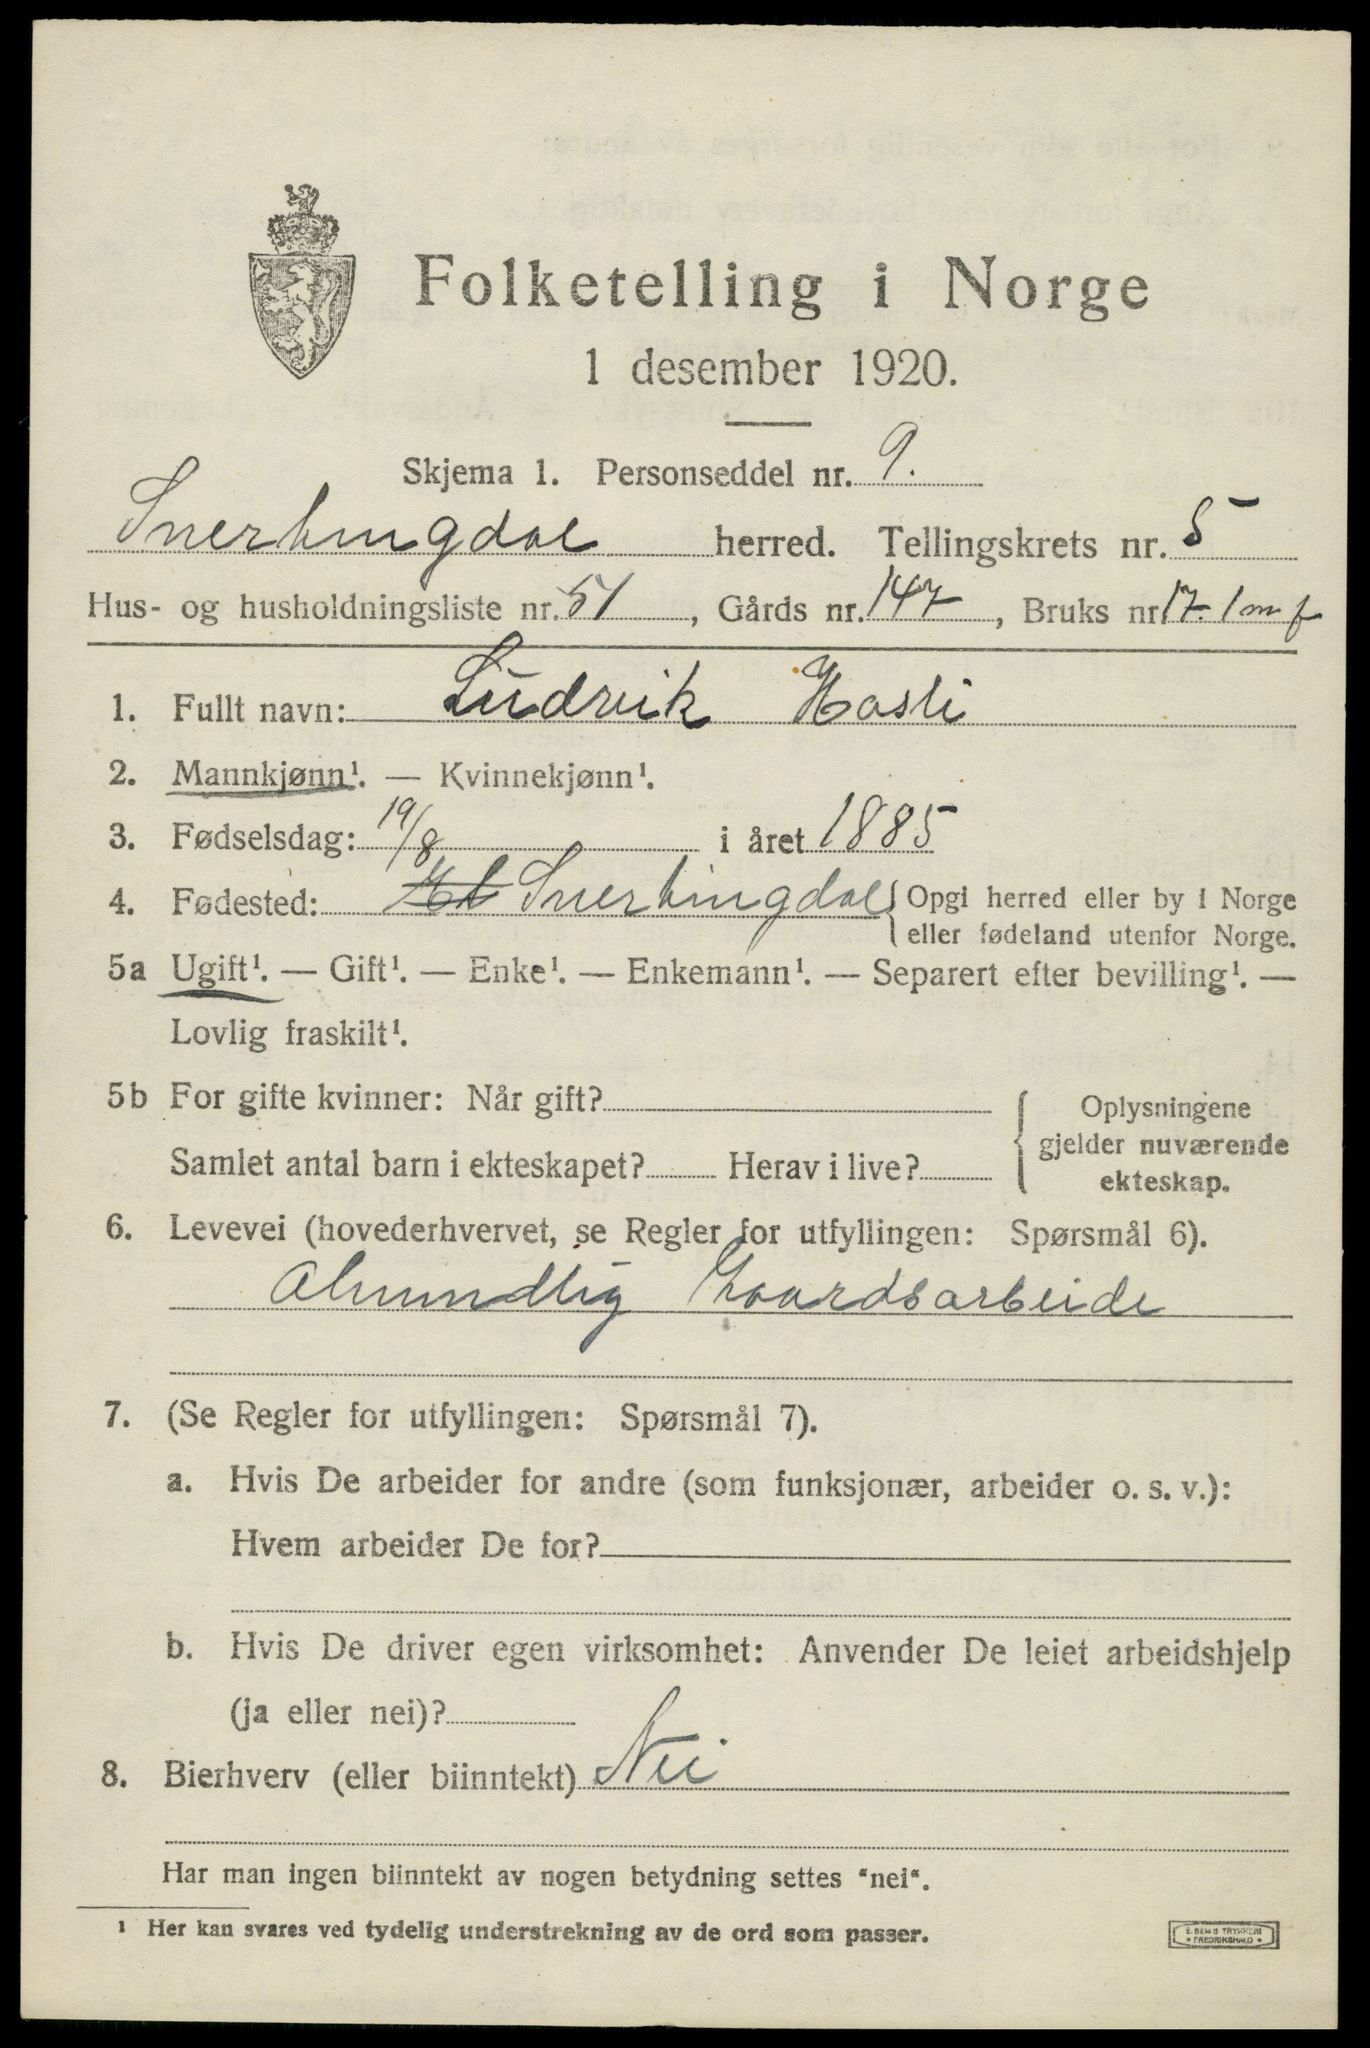 Folketelling i Norge
1 desember 1920.
Skjema 1. Personseddel nr. 9.
Snertingdal herred. Tellingskrets nr. 5
Hus- og husholdningsliste nr. 51, Gårds nr. 147, Bruks nr. 17. 1 m f
1. Fullt navn: Ludvik Hasli
2. Mannkjønn¹. — Kvinnekjønn¹.
3. Fødselsdag: 19/8 i året 1885
4. Fødested: Snertingdal { Opgi herred eller by i Norge
eller fødeland utenfor Norge.
5a Ugift¹. — Gift¹. — Enke¹. — Enkemann¹. — Separert efter bevilling¹. —
Lovlig fraskilt¹.
5b For gifte kvinner: Når gift?
Samlet antal barn i ekteskapet? Herav i live?
Oplysningene
gjelder nuværende
ekteskap.
6. Levevei (hovederhvervet, se Regler for utfyllingen: Spørsmål 6).
Almindlig Gaardsarbeide
7. (Se Regler for utfyllingen: Spørsmål 7).
a. Hvis De arbeider for andre (som funksjonær, arbeider o. s. v.):
Hvem arbeider De for?
b. Hvis De driver egen virksomhet: Anvender De leiet arbeidshjelp
(ja eller nei)?
8. Bierhverv (eller biinntekt) Nei
Har man ingen biinntekt av nogen betydning settes "nei".
¹ Her kan svares ved tydelig understrekning av de ord som passer.
E. SEM'S TRYKKERI
FREDRIKSHALD